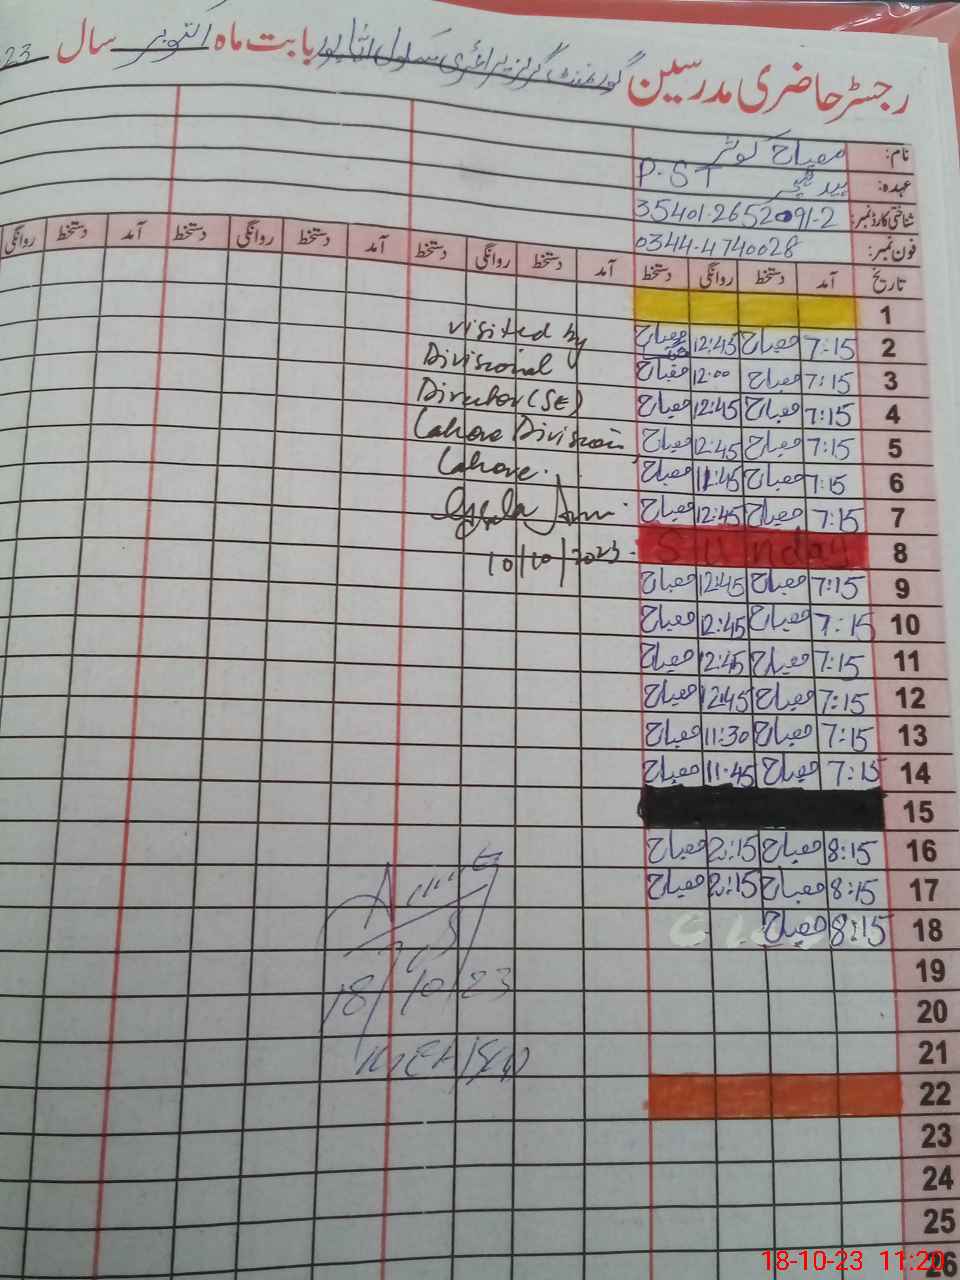 رجسٹر حاضری مدرسین گورنمنٹ گرلز پرائمری سکول اٹاپور بابت ماہ اکتوبر سال 23
نام: مصباح کوثر
عہدہ: ہیڈ ٹیچر P.ST
شناختی کارڈ نمبر: 35401-2652091-2
فون نمبر: 0344-4740028
تاریخ آمد دستخط روانگی دستخط آمد دستخط روانگی دستخط آمد دستخط روانگی دستخط آمد دستخط روانگی
1
2 7:15 مصباح 12:45 مصباح
3 7:15 مصباح 12:00 مصباح
4 7:15 مصباح 12:45 مصباح
5 7:15 مصباح 12:45 مصباح
6 7:15 مصباح 11:45 مصباح
7 7:15 مصباح 12:45 مصباح
8 Sunday
9 7:15 مصباح 12:45 مصباح
10 7:15 مصباح 12:45 مصباح
11 7:15 مصباح 12:45 مصباح
12 7:15 مصباح 12:45 مصباح
13 7:15 مصباح 11:30 مصباح
14 7:15 مصباح 11:45 مصباح
15
16 8:15 مصباح 2:15 مصباح
17 8:15 مصباح 2:15 مصباح
18 8:15 مصباح
19
20
21
22
23
24
25
26
visited by
Divisional
Director (SE)
Lahore Division
Lahore.
10/10/2023
18/10/23
18-10-23 11:20